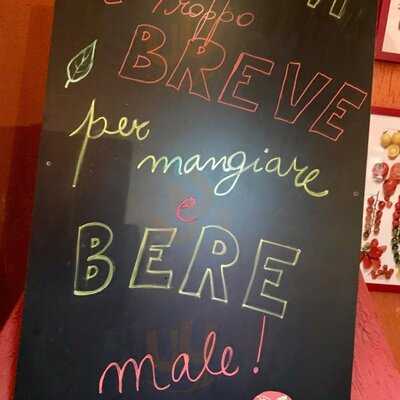 è troppo
BREVE
per
mangiare
e
BERE
male!